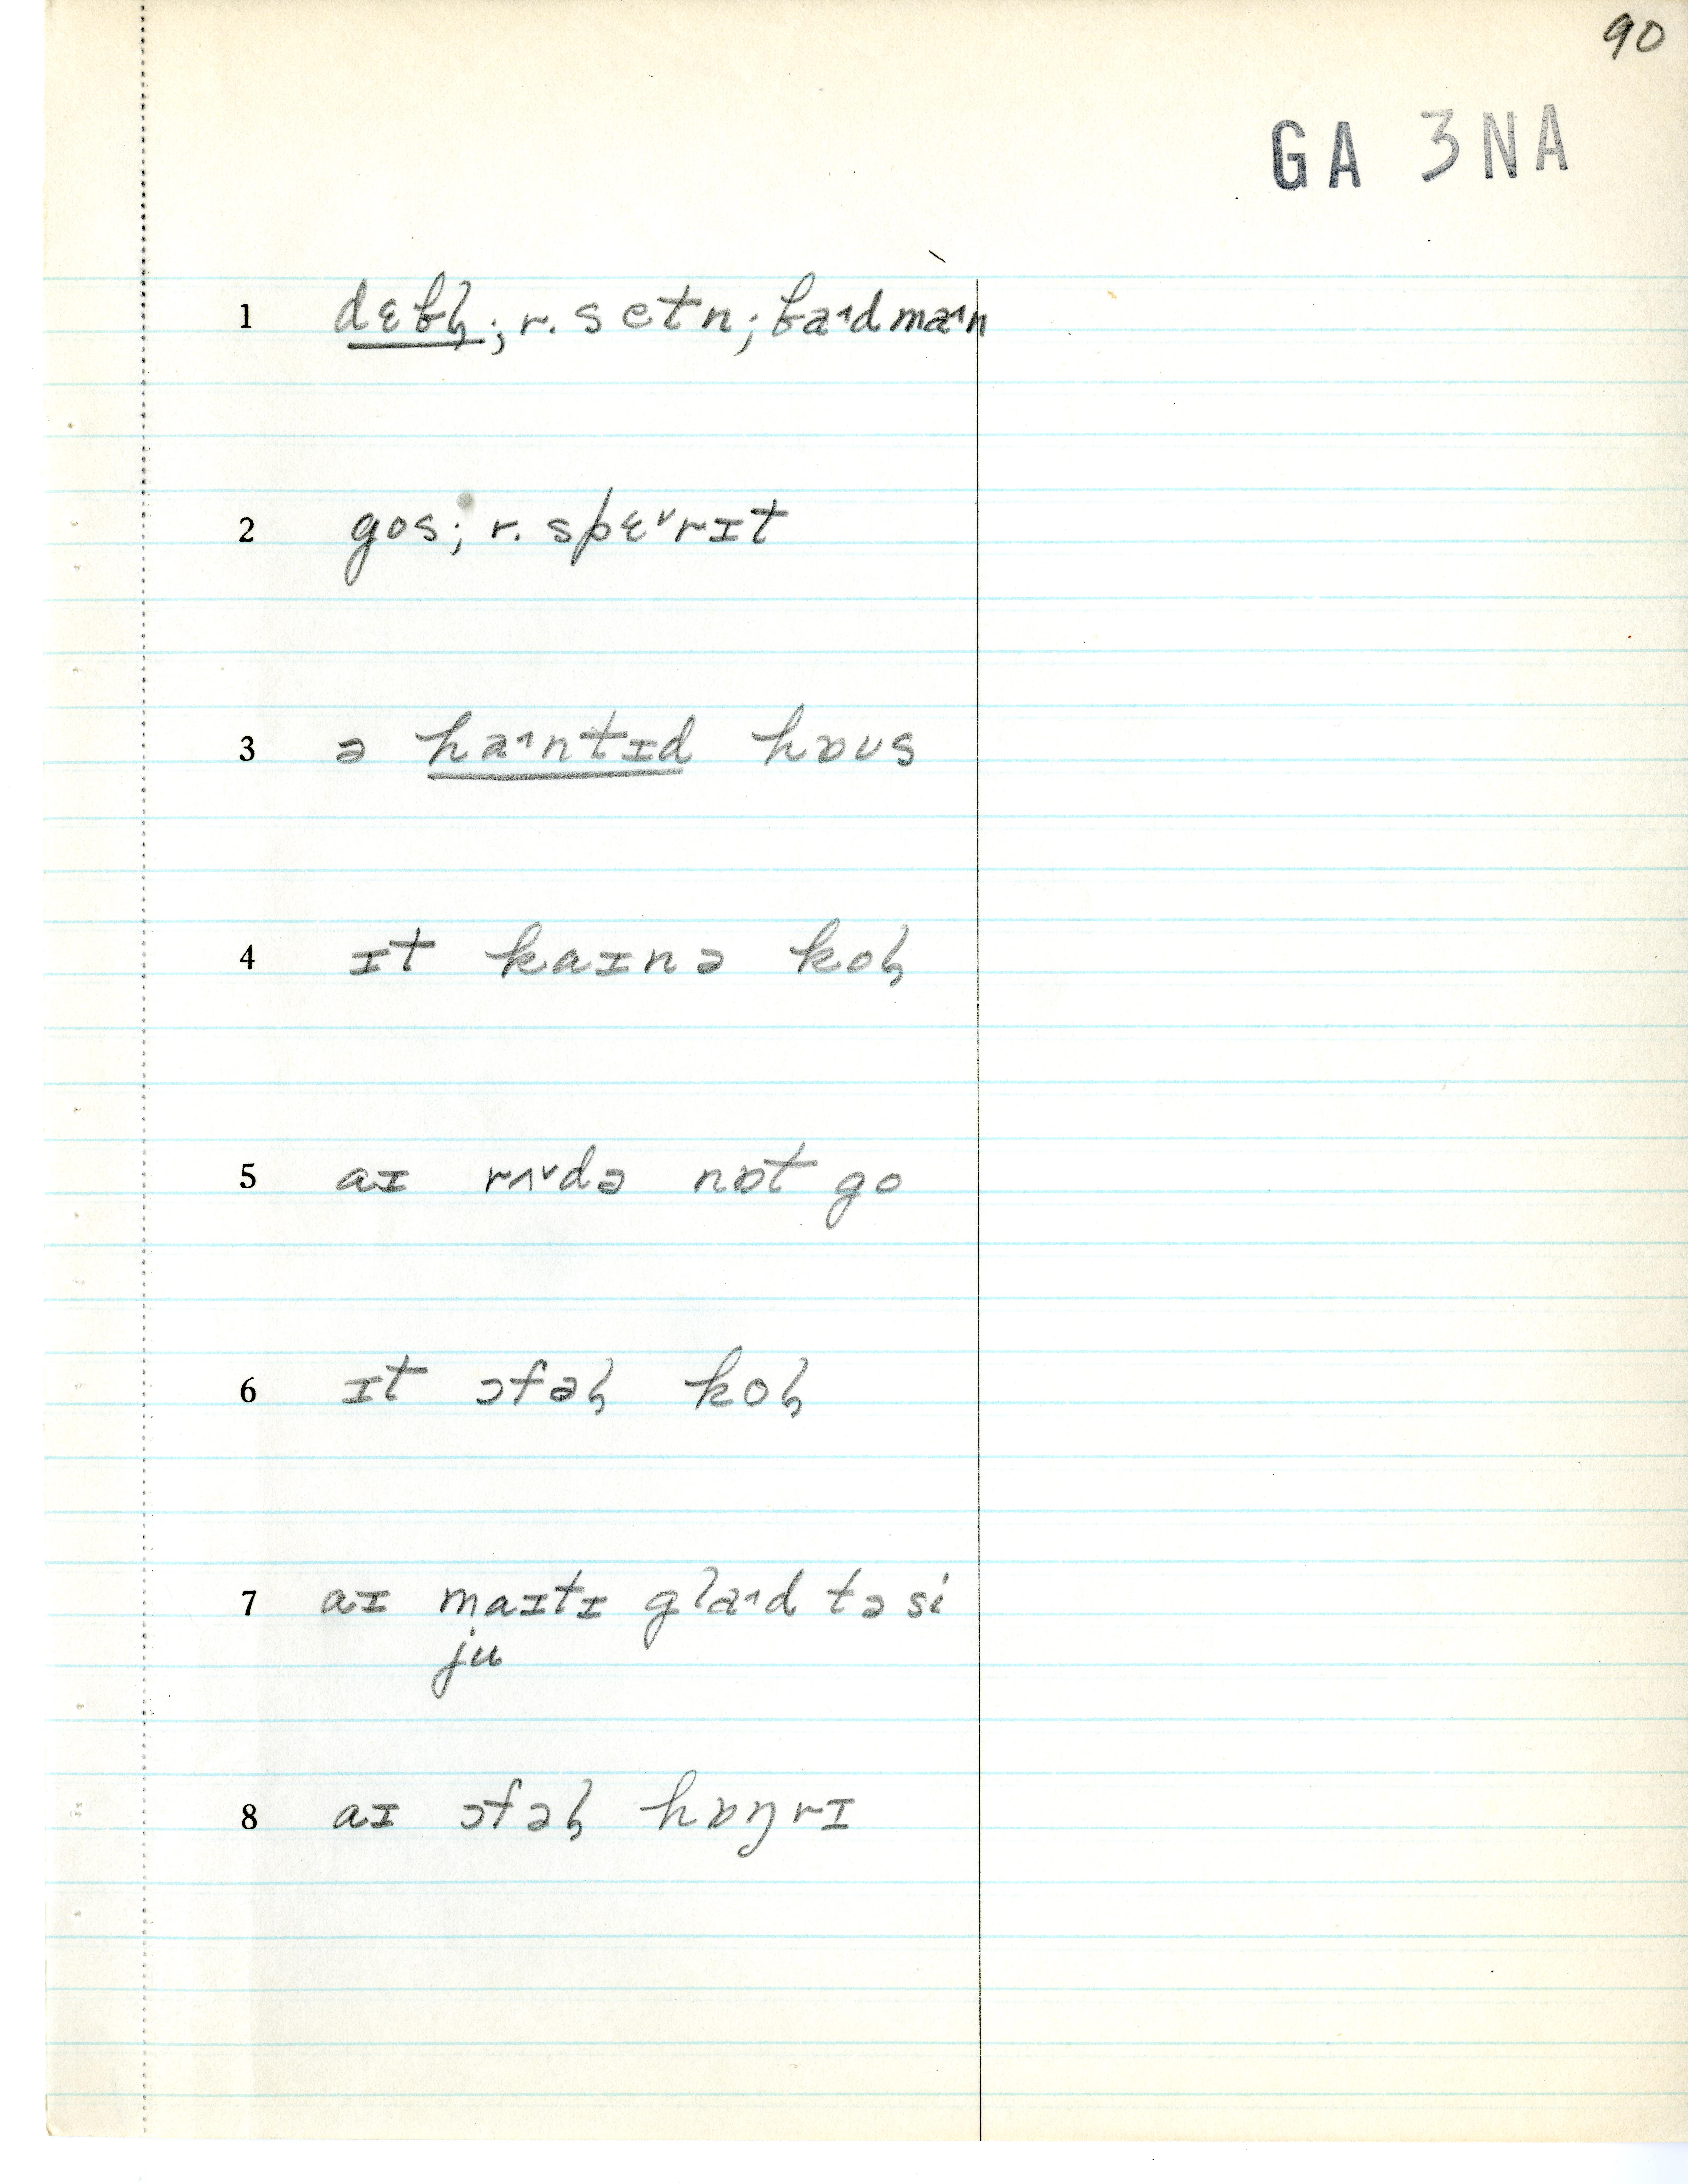 90
GA 3NA
1 dɛbɫ̩; r. setn; ba˄dma˄n
2 gos; r. spɛ˅rɪt
3 ə ha˄ntɪd hɒʊs
4 ɪt kaɪnə koɫ
5 aɪ rʌ˅də nɒt go
6 ɪt ɔfəɫ koɫ
7 aɪ maɪtɪ gla˄d tə si
ju
8 aɪ ɔfəɫ hɒŋrɪ